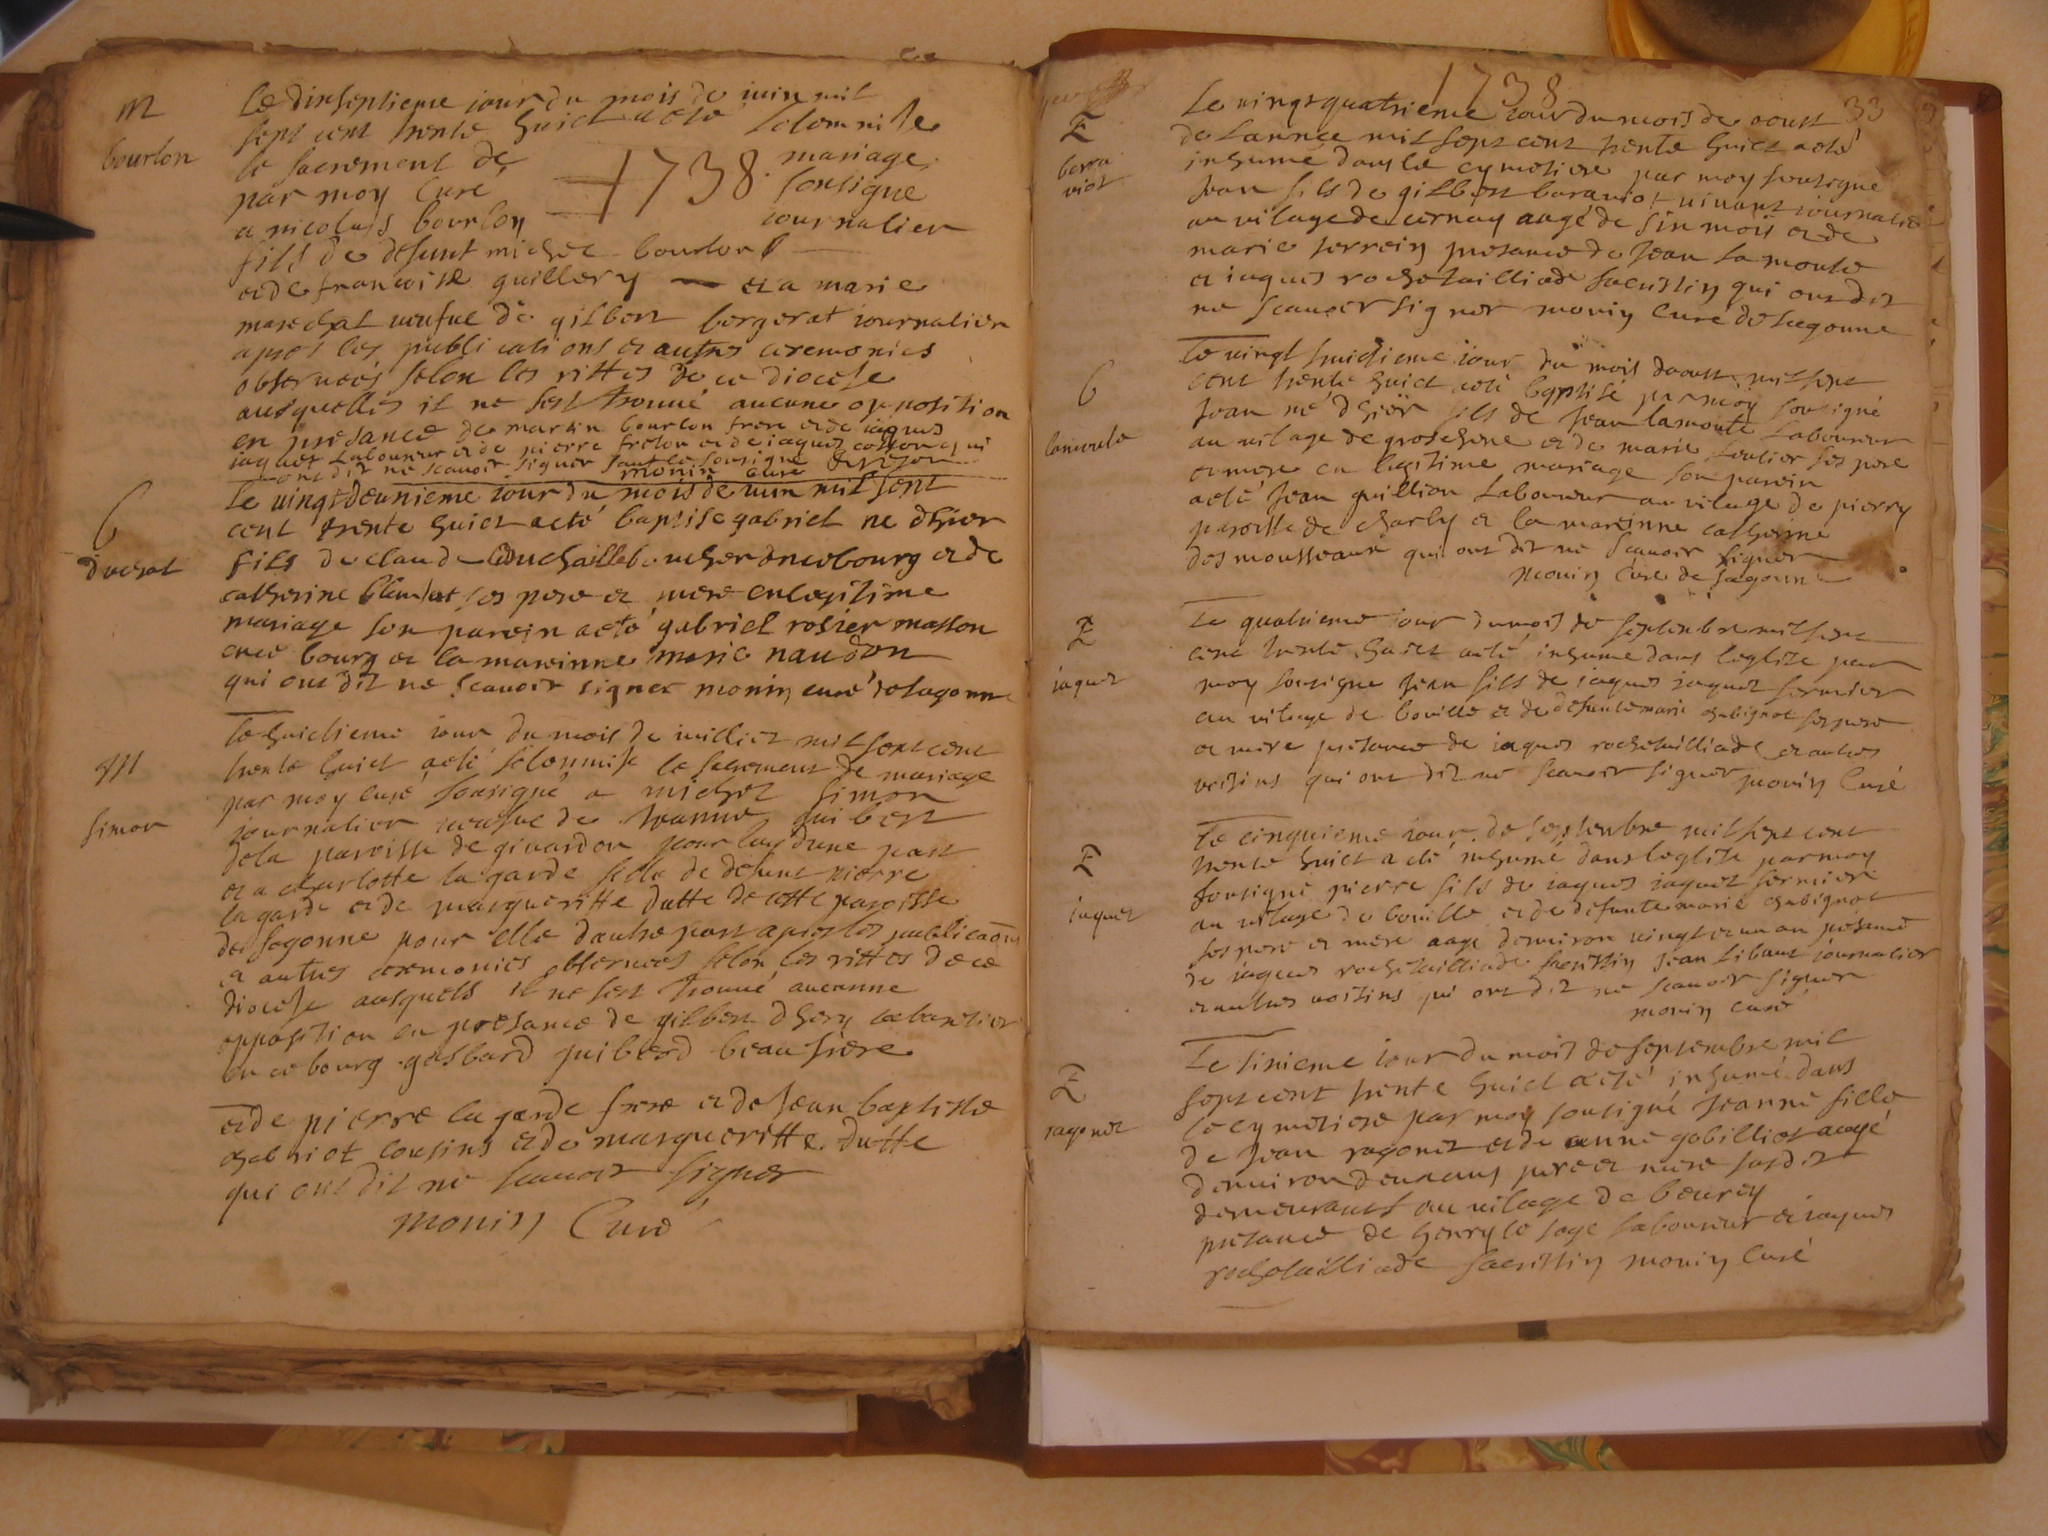 m
bourlon
Le dixseptieme iour du mois de iuin mil
sept cent trente huict a eté solemnise
le sacrement de mariage
par moy Curé 1738 sousigne
a nicolas bourlon iournalier
fils de defunt michel bourlon
et de francoise guillery et a marie
mareschal veufue de gilbert bergerat iournalier
apres les publications et autres ceremonies
obseruées selon les rittes de ce diocese
ausquelles il ne sest trouué aucune opposition
en presance de martin bourlon frere et de iaques
iaquet Laboureur et de pierre frelon et de iaques qui
ont dit ne scauoir signer sauf le sousigné
monin curé
b
duchat
Le uingtdeuxieme iour du mois de iuin mil sept
cent trente huict a eté baptise gabriel ne dhier
fils de claude boucher en ce bourg et de
catherine ses pere et mere en legitime
mariage son parein a eté gabriel rosier masson
en ce bourg et la mareinne marie naudon
qui ont dit ne scauoir signer monin curé de sagonne
m
simon
Le huictieme iour du mois de iuillet mil sept cent
trente huict a eté solemnisé le sacrement de mariage
par moy curé sousigné a michel simon
journalier ueufue de Jeanne guibert
de la paroisse de giuardon pour luy dune part
et a charlotte la garde fille de defunt pierre
la garde et de margueritte dutte de cette paroisse
de sagonne pour elle dautre part apres les publicaons
et autres ceremonies obseruees selon les rittes de ce
diocese ausquels il ne sest trouué aucunne
opposition en presance de gilbert dhery cabaretier
en ce bourg gasbard guiberd beaufrere
et de pierre la garde frere et de Jean baptiste
chabriot cousins et de margueritte dutte
qui ont dit ne scauoir signer
monin Curé
1738
33
E
berra
uiot
Le uingtquatrieme iour du mois de aoust
de Lannee mil sept cent trente huict a eté
inhumé dans le cymetiere par moy sousigné
Jean fils de gilbert barauiot uiuant iournalier
au uilage de cernay aagé de six mois et de
marie perrein presance de Jean Lamoute
et iaques rochetailliade sacristin qui ont dit
ne scauoir signer monin Curé de sagonne
b
lamoute
Le uingt huictieme iour du mois daoust mil sept
cent trente huict a eté baptisé par moy sousigné
Jean né dhier fils de Jean lamoute Laboureur
au uilage de grosschene et de marie soulier ses pere
et mere en legitime mariage son parein
a eté Jean guillion Laboureur au uilage de pierry
paroisse de charly et la mareinne catherine
desmousseaux qui ont dit ne scauoir signer
monin Curé de sagonne
E
iaquet
Le quatrieme iour du mois de septembre mil sept
cent trente huict a eté inhumé dans leglise par
moy sousigne Jean fils de iaques iaquet fermier
au uilage de bouille et de defunte marie chabignot ses pere
et mere presance de iaques rochetailliade et autres
uoisins qui ont dit ne scauoir signer monin Curé
E
iaquet
Le cinquieme iour de septembre mil sept cent
trente huict a eté inhumé dans leglise par moy
sousigné pierre fils de iaques iaquet fermier
au uilage de bouille et de defunte marie chabignot
ses pere et mere aagé denuiron uingt et un an presance
de iaques rochetailliade sacristin Jean libaut iournalier
et autres uoisins qui ont dit ne scauoir signer
monin curé
E
ragonet
Le sixieme iour du mois de septembre mil
sept cent trente huict a eté inhumé dans
le cymetiere par moy sousigné Jeanne fille
de Jean ragonet et de anne gobilliot aagé
denuiron deux ans pere et mere susdit
demeurant au uilage de beurey
presance de henry le sage laboureur et iaques
rochetailliade sacristin monin Curé